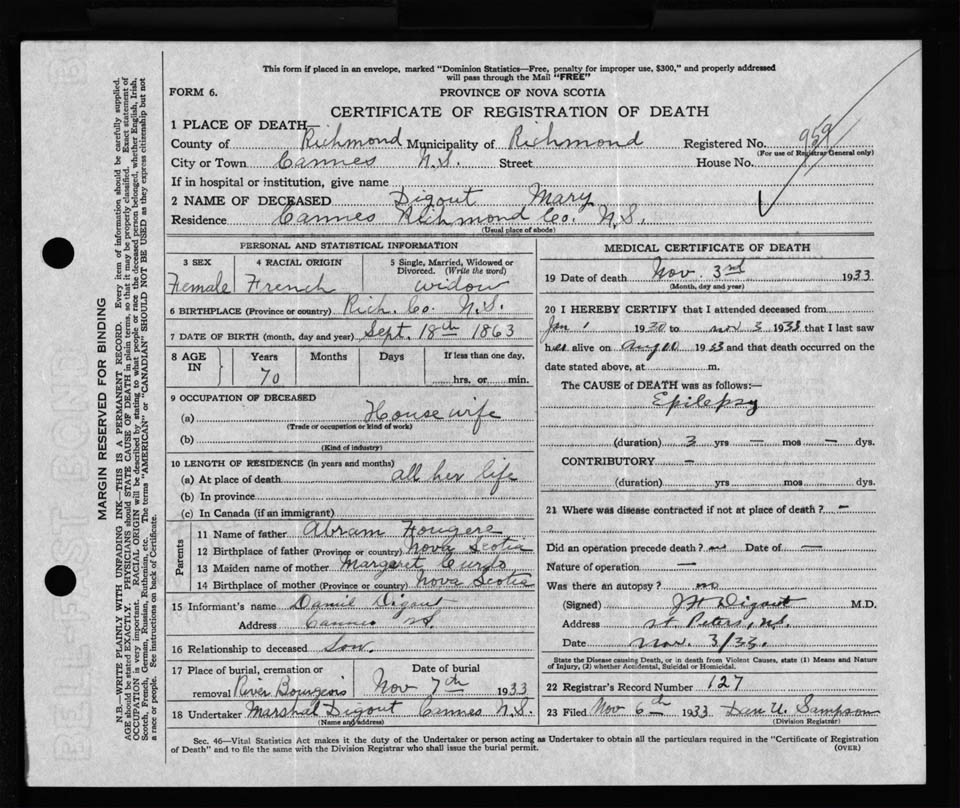 This form if placed in an envelope, marked "Dominion Statistics—Free, penalty for improper use, $300," and properly addressed
will pass through the Mail "FREE"
FORM 6.
PROVINCE OF NOVA SCOTIA
CERTIFICATE OF REGISTRATION OF DEATH
1 PLACE OF DEATH—
County of Richmond Municipality of Richmond Registered No. 959
(For use of Registrar General only)
City or Town Cannes N.S. Street House No.
If in hospital or institution, give name
2 NAME OF DECEASED Digout Mary
Residence Cannes Richmond Co. N.S.
(Usual place of abode)
PERSONAL AND STATISTICAL INFORMATION
3 SEX 4 RACIAL ORIGIN 5 Single, Married, Widowed or
Divorced. (Write the word)
Female French widow
6 BIRTHPLACE (Province or country) Rich. Co. N.S.
7 DATE OF BIRTH (month, day and year) Sept. 18th 1863
8 AGE IN Years Months Days If less than one day,
70 hrs. or min.
9 OCCUPATION OF DECEASED
(a) House wife
(Trade or occupation or kind of work)
(b)
(Kind of industry)
10 LENGTH OF RESIDENCE (in years and months)
(a) At place of death all her life
(b) In province
(c) In Canada (if an immigrant)
Parents
11 Name of father Abram Fougere
12 Birthplace of father (Province or country) Nova Scotia
13 Maiden name of mother Margaret
14 Birthplace of mother (Province or country) Nova Scotia
15 Informant's name Daniel Digout
Address Cannes NS.
16 Relationship to deceased Son.
17 Place of burial, cremation or Date of burial
removal River Bourgeois Nov 7th 1933
18 Undertaker Marshal Digout Cannes N.S.
(Name and address)
MEDICAL CERTIFICATE OF DEATH
19 Date of death Nov. 3rd 1933
(Month, day and year)
20 I HEREBY CERTIFY that I attended deceased from
Jan 1 1930 to Nov 3 1933 that I last saw
her alive on Aug 1933 and that death occurred on the
date stated above, at m.
The CAUSE of DEATH was as follows:—
Epilepsy
(duration) 3 yrs — mos — dys.
CONTRIBUTORY —
(duration) yrs mos dys.
21 Where was disease contracted if not at place of death? —
Did an operation precede death? no Date of —
Nature of operation —
Was there an autopsy? no
(Signed) J H Digout M.D.
Address St. Peters, N.S.
Date Nov. 3/33.
State the Disease causing Death, or in death from Violent Causes, state (1) Means and Nature
of Injury, (2) whether Accidental, Suicidal or Homicidal.
22 Registrar's Record Number 127
23 Filed Nov 6th 1933 Dan U. Sampson
(Division Registrar)
Sec. 46—Vital Statistics Act makes it the duty of the Undertaker or person acting as Undertaker to obtain all the particulars required in the "Certificate of Registration
of Death" and to file the same with the Division Registrar who shall issue the burial permit.
(OVER)
MARGIN RESERVED FOR BINDING
N.B.—WRITE PLAINLY WITH UNFADING INK—THIS IS A PERMANENT RECORD. Every item of information should be carefully supplied.
AGE should be stated EXACTLY. PHYSICIANS should STATE CAUSE OF DEATH in plain terms, so that it may be properly classified. Exact statement of
OCCUPATION is very important. RACIAL ORIGIN will be described by stating to what people or race the deceased person belonged, whether English, Irish,
Scotch, French, German, Russian, Ruthenian, etc. The terms "AMERICAN" or "CANADIAN" SHOULD NOT BE USED as they express citizenship but not
a race or people. See instructions on back of Certificate.